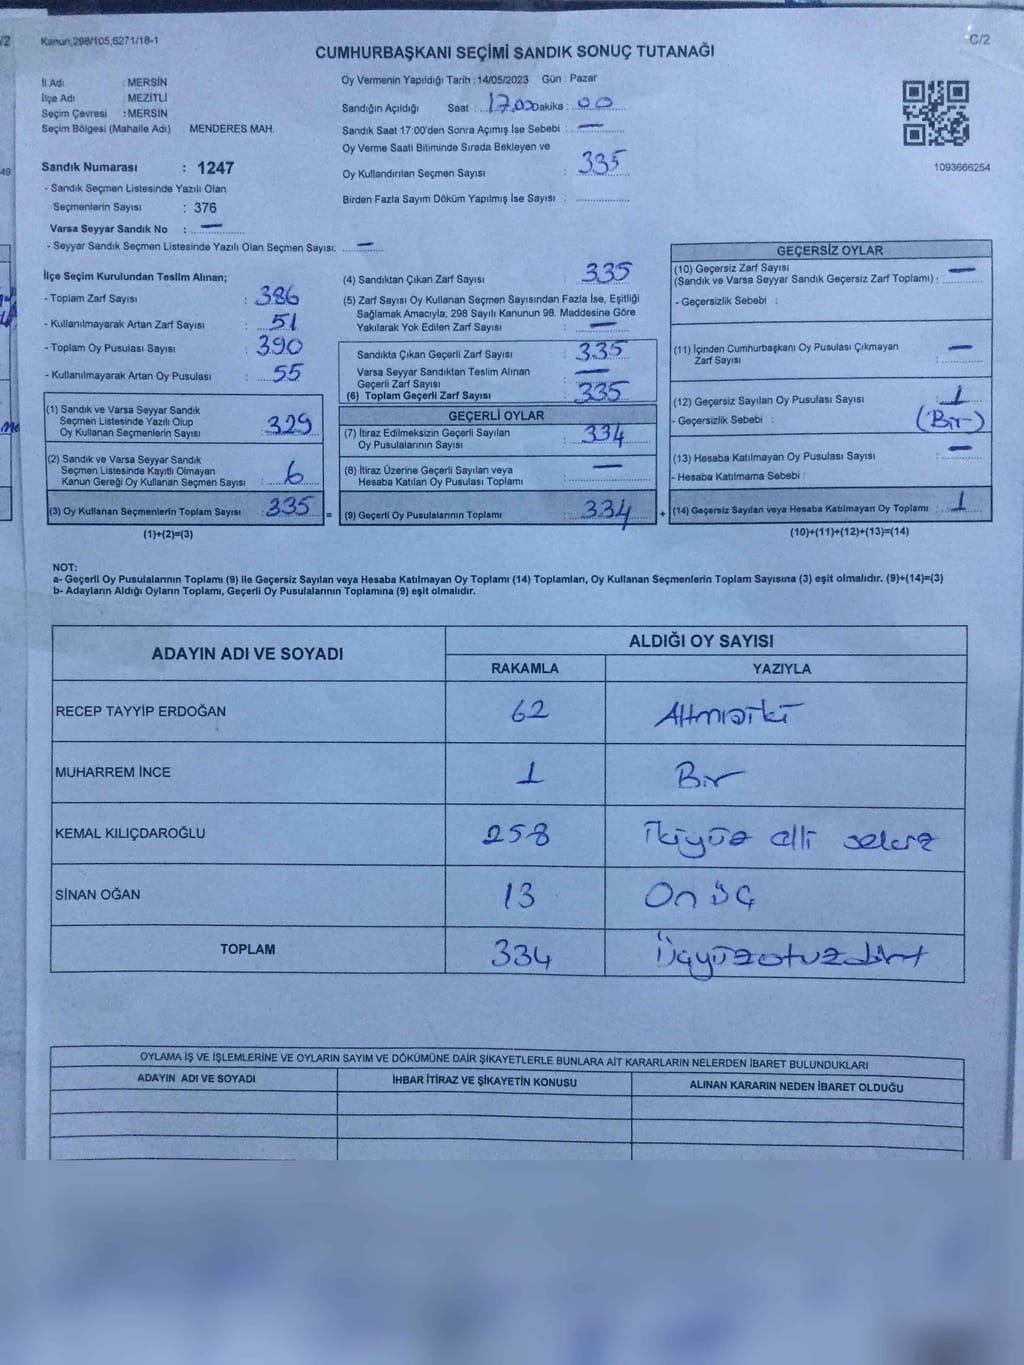 Kanun,298/105,6271/18-1
C/2
CUMHURBAŞKANI SEÇİMİ SANDIK SONUÇ TUTANAĞI
İl Adı : MERSİN
İlçe Adı : MEZİTLİ
Seçim Çevresi : MERSİN
Seçim Bölgesi (Mahalle Adı) : MENDERES MAH.
Sandık Numarası : 1247
- Sandık Seçmen Listesinde Yazılı Olan
Seçmenlerin Sayısı : 376
Varsa Seyyar Sandık No : —
- Seyyar Sandık Seçmen Listesinde Yazılı Olan Seçmen Sayısı: —
Oy Vermenin Yapıldığı Tarih : 14/05/2023 Gün : Pazar
Sandığın Açıldığı Saat : 17.00 Dakika : 00
Sandık Saat 17:00'den Sonra Açımış İse Sebebi : —
Oy Verme Saati Bitiminde Sırada Bekleyen ve
Oy Kullandırılan Seçmen Sayısı : 335
Birden Fazla Sayım Döküm Yapılmış İse Sayısı :
1093666254
İlçe Seçim Kurulundan Teslim Alınan;
- Toplam Zarf Sayısı : 386
- Kullanılmayarak Artan Zarf Sayısı : 51
- Toplam Oy Pusulası Sayısı : 390
- Kullanılmayarak Artan Oy Pusulası : 55
(1) Sandık ve Varsa Seyyar Sandık
Seçmen Listesinde Yazılı Olup
Oy Kullanan Seçmenlerin Sayısı : 329
(2) Sandık ve Varsa Seyyar Sandık
Seçmen Listesinde Kayıtlı Olmayan
Kanun Gereği Oy Kullanan Seçmen Sayısı : 6
(3) Oy Kullanan Seçmenlerin Toplam Sayısı : 335 =
(1)+(2)=(3)
(4) Sandıktan Çıkan Zarf Sayısı : 335
(5) Zarf Sayısı Oy Kullanan Seçmen Sayısından Fazla İse, Eşitliği
Sağlamak Amacıyla; 298 Sayılı Kanunun 98. Maddesine Göre
Yakılarak Yok Edilen Zarf Sayısı : —
Sandıkta Çıkan Geçerli Zarf Sayısı : 335
Varsa Seyyar Sandıktan Teslim Alınan
Geçerli Zarf Sayısı : —
(6) Toplam Geçerli Zarf Sayısı : 335
GEÇERLİ OYLAR
(7) İtiraz Edilmeksizin Geçerli Sayılan
Oy Pusulalarının Sayısı : 334
(8) İtiraz Üzerine Geçerli Sayılan veya
Hesaba Katılan Oy Pusulası Toplamı : —
(9) Geçerli Oy Pusulalarının Toplamı : 334 +
GEÇERSİZ OYLAR
(10) Geçersiz Zarf Sayısı
(Sandık ve Varsa Seyyar Sandık Geçersiz Zarf Toplamı) : —
- Geçersizlik Sebebi :
(11) İçinden Cumhurbaşkanı Oy Pusulası Çıkmayan
Zarf Sayısı : —
(12) Geçersiz Sayılan Oy Pusulası Sayısı : 1
- Geçersizlik Sebebi : (Bir)
(13) Hesaba Katılmayan Oy Pusulası Sayısı : —
- Hesaba Katılmama Sebebi :
(14) Geçersiz Sayılan veya Hesaba Katılmayan Oy Toplamı : 1
(10)+(11)+(12)+(13)=(14)
NOT:
a- Geçerli Oy Pusulalarının Toplamı (9) ile Geçersiz Sayılan veya Hesaba Katılmayan Oy Toplamı (14) Toplamları, Oy Kullanan Seçmenlerin Toplam Sayısına (3) eşit olmalıdır. (9)+(14)=(3)
b- Adayların Aldığı Oyların Toplamı, Geçerli Oy Pusulalarının Toplamına (9) eşit olmalıdır.
ADAYIN ADI VE SOYADI ALDIĞI OY SAYISI
RAKAMLA YAZIYLA
RECEP TAYYİP ERDOĞAN 62 Altmışiki
MUHARREM İNCE 1 Bir
KEMAL KILIÇDAROĞLU 258 İkiyüz elli sekiz
SİNAN OĞAN 13 On üç
TOPLAM 334 Üçyüzotuzdört
OYLAMA İŞ VE İŞLEMLERİNE VE OYLARIN SAYIM VE DÖKÜMÜNE DAİR ŞİKAYETLERLE BUNLARA AİT KARARLARIN NELERDEN İBARET BULUNDUKLARI
ADAYIN ADI VE SOYADI İHBAR İTİRAZ VE ŞİKAYETİN KONUSU ALINAN KARARIN NEDEN İBARET OLDUĞU